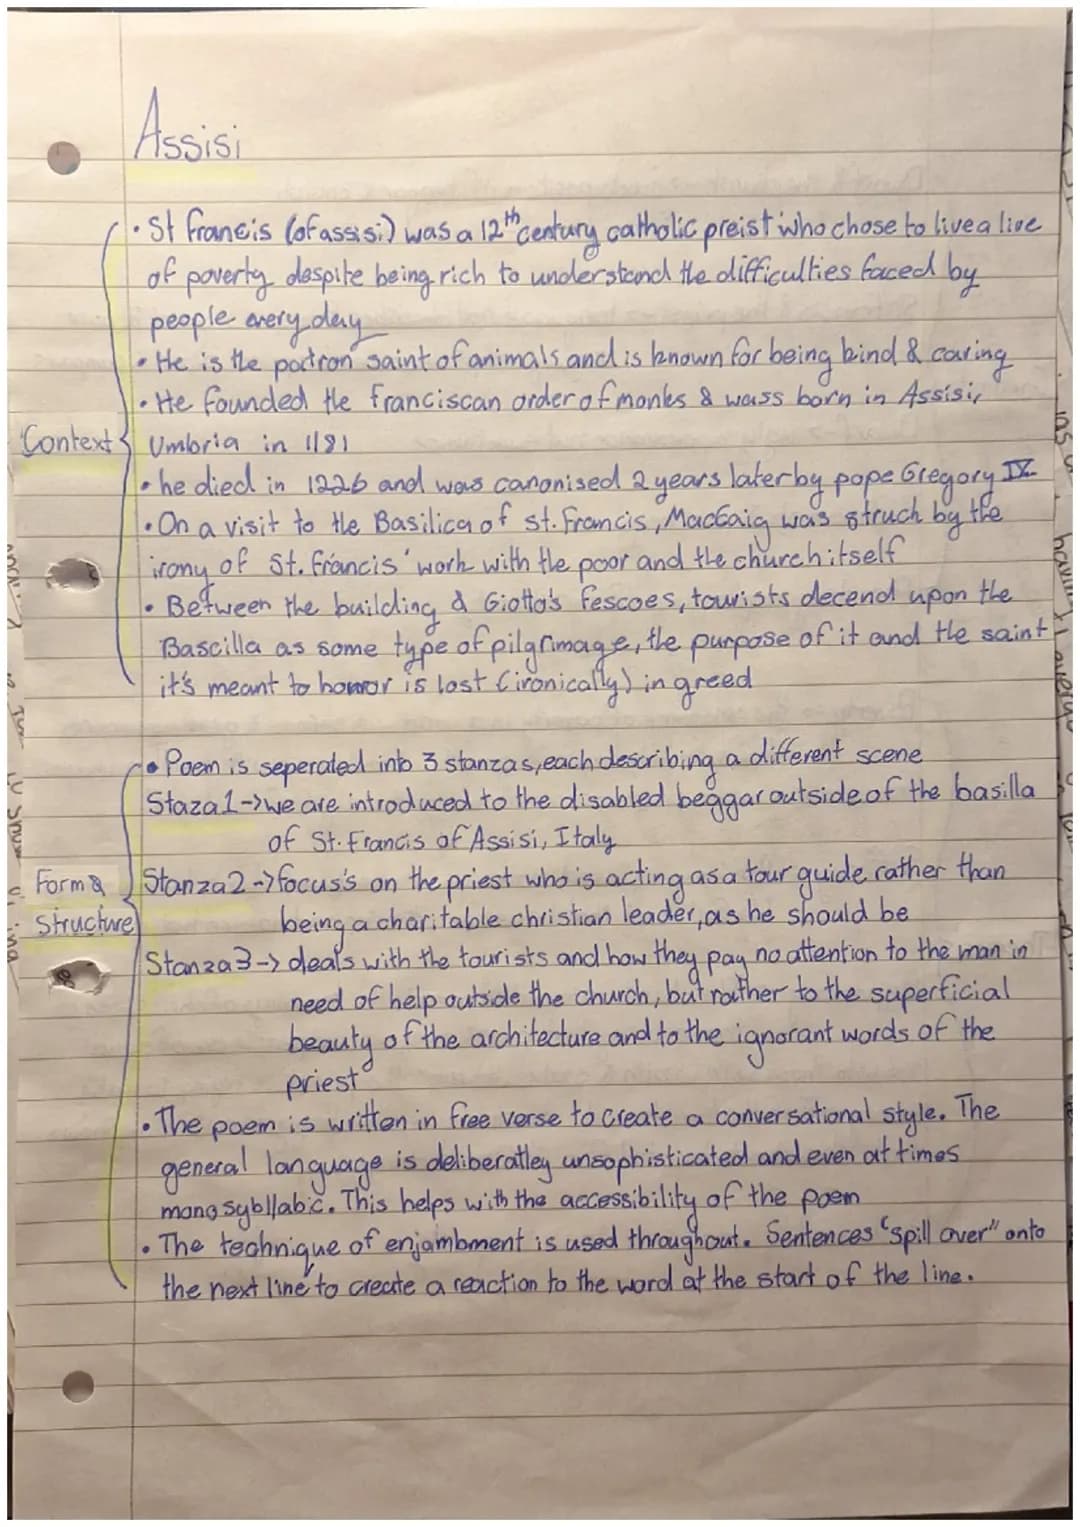 Assisi
• St francis (of assisi) was a 12th century catholic preist who chose to live a live
of poverty despite being rich to understand the difficulties faced by
people every day
• He is the patron saint of animals and is known for being kind & caring
• He founded the franciscan order of monks & wass born in Assisi,
Context
Umbria in 1181
• he died in 1226 and was canonised 2 years later by pope Gregory IX
• On a visit to the Basilica of St. Francis, MacCaig was struck by the
irony of St. francis' work with the poor and the church itself
• Between the building & Giotto's fescoes, tourists decend upon the
Bascilla as some type of pilgrimage, the purpose of it and the saint
it's meant to honor is lost (ironically) in greed
• Poem is seperated into 3 stanzas, each describing a different scene
Staza1->we are introduced to the disabled beggar outside of the basilla
of St. Francis of Assisi, Italy
Form &
Structure
Stanza2->focus's on the priest who is acting as a tour guide rather than
being a charitable christian leader, as he should be
Stanza3-> deals with the tourists and how they pay no attention to the man in
need of help outside the church, but rather to the superficial
beauty of the architecture and to the ignorant words of the
priest
• The poem is written in free verse to create a conversational style. The
general language is deliberatley unsophisticated and even at times
monosybllabic. This helps with the accessibility of the poem
• The technique of enjambment is used throughout. Sentences "spill over" onto
the next line to create a reaction to the word at the start of the line.